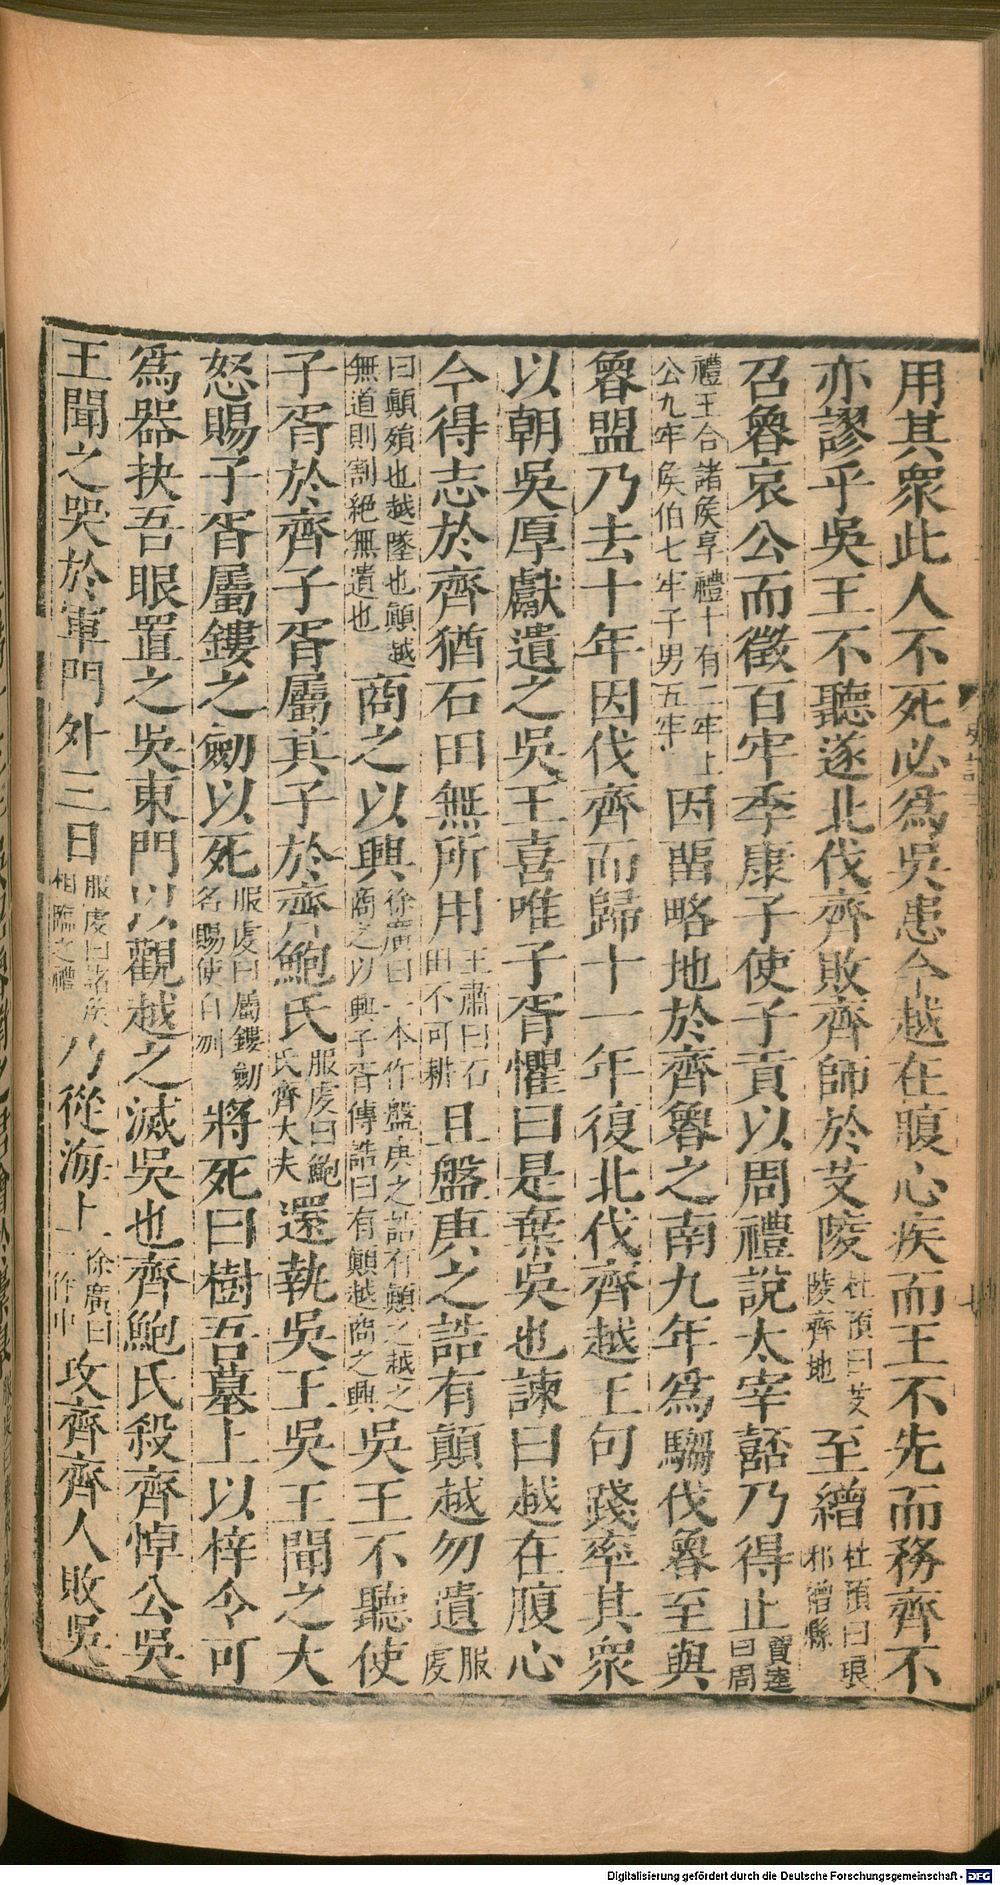 用其衆此人不死必爲吳患今越在腹心疾而王不先而務齊不
亦謬乎吳王不聽遂北伐齊敗齊師於艾陵杜預曰艾陵齊地至繒杜預曰琅邪繒縣
召魯哀公而徵百牢季康子使子貢以周禮說太宰嚭乃得止賈逵曰周
禮王合諸侯享禮十有二牢上公九牢侯伯七牢子男五牢因留略地於齊魯之南九年爲騶伐魯至與
魯盟乃去十年因伐齊而歸十一年復北伐齊越王句踐率其衆
以朝吳厚獻遺之吳王喜唯子胥懼曰是棄吳也諫曰越在腹心
今得志於齊猶石田無所用王肅曰石田不可耕且盤庚之誥有顛越勿遺服虔
曰顛殞也越墜也顛越無道則割絕無遺也商之以興徐廣曰一本作盤庚之誥有顛之越之商之以興子胥傳誥曰有顛越商之興吳王不聽使
子胥於齊子胥屬其子於齊鮑氏服虔曰鮑氏齊大夫還執吳王吳王聞之大
怒賜子胥屬鏤之劒以死服虔曰屬鏤劒名賜使自刎將死曰樹吾墓上以梓令可
爲器抉吾眼置之吳東門以觀越之滅吳也齊鮑氏殺齊悼公吳
王聞之哭於軍門外三日服虔曰諸侯相臨之禮乃從海上徐廣曰一作中攻齊齊人敗吳
Digitalisierung gefördert durch die Deutsche Forschungsgemeinschaft - DFG